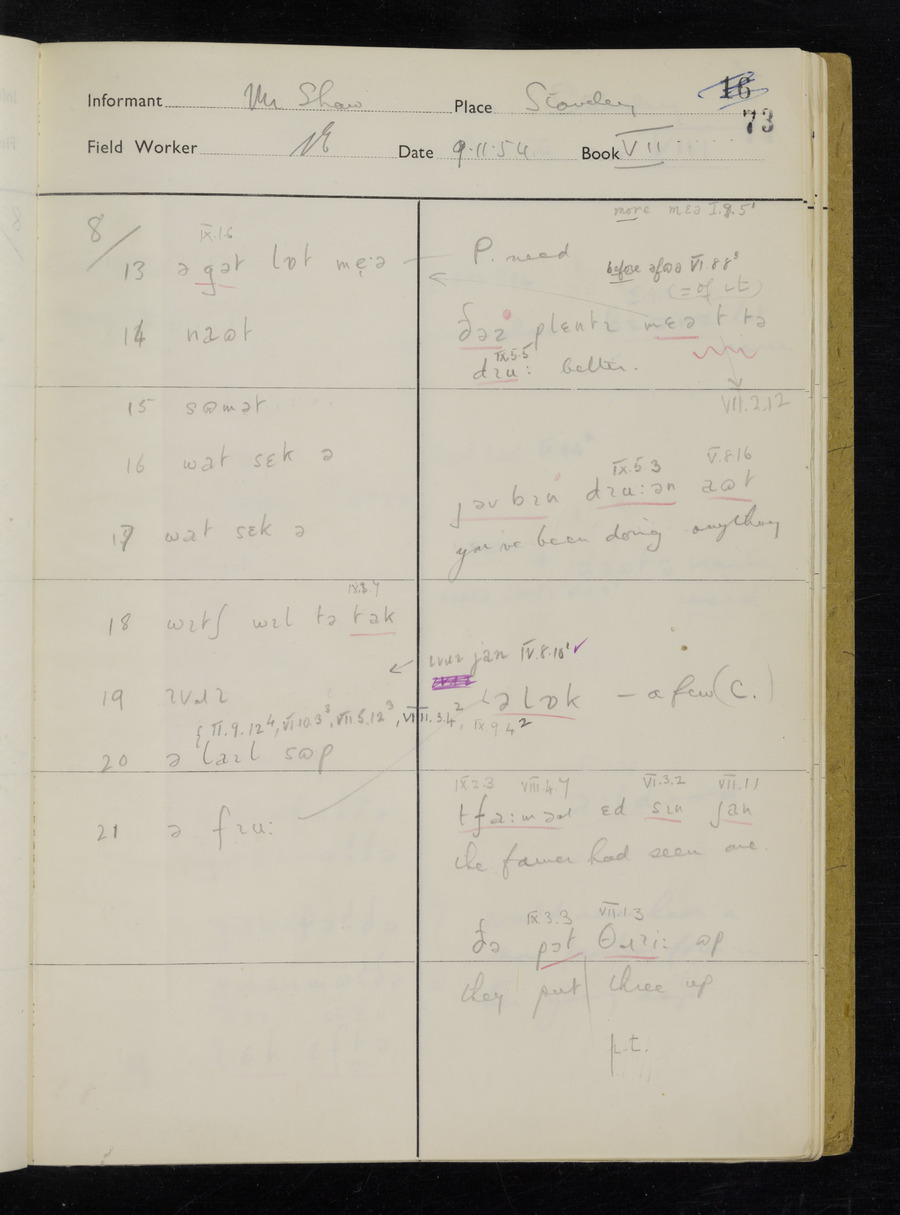 Informant Mr Shaw Place Staveley 16
73
Field Worker Date 9.11.54 Book VII
more mɛə I.9.5¹
8/ IX.1.6
13 ə gət lɒt mẹ:ə — P. need
before əfɒə VI.8.8³
(= of it)
14 nɪɷt
ðəɪ plɛntɪ mɛə t tə
IX.5.5
dɪu: better.
15 sɷmət
VII.2.12
16 wat sɛk ə
IX.5.3 V.8.16
jəv bɪn dɪu:ən aɷt
17 wat sɛk ə
you've been doing anything
IX.3.7
18 wɪtʃ wɪl tə tək
ɪvəɪ jan IV.8.10¹ ✓
19 ɪvəɪ
ə lɒk — a few (C.)
II.9.12⁴, VI.10.3³, VII.5.12³, VIII.3.4², IX.9.4²
20 ə laɪl sɷp
IX.2.3 VIII.4.7 VI.3.2 VII.1.1
21 ə fɪu:
tfa:məɹ ɛd sɪn jan
the farmer had seen one.
IX.3.3 VII.1.3
ðə pət θɹɪi: ɷp
they put three up
p.t.